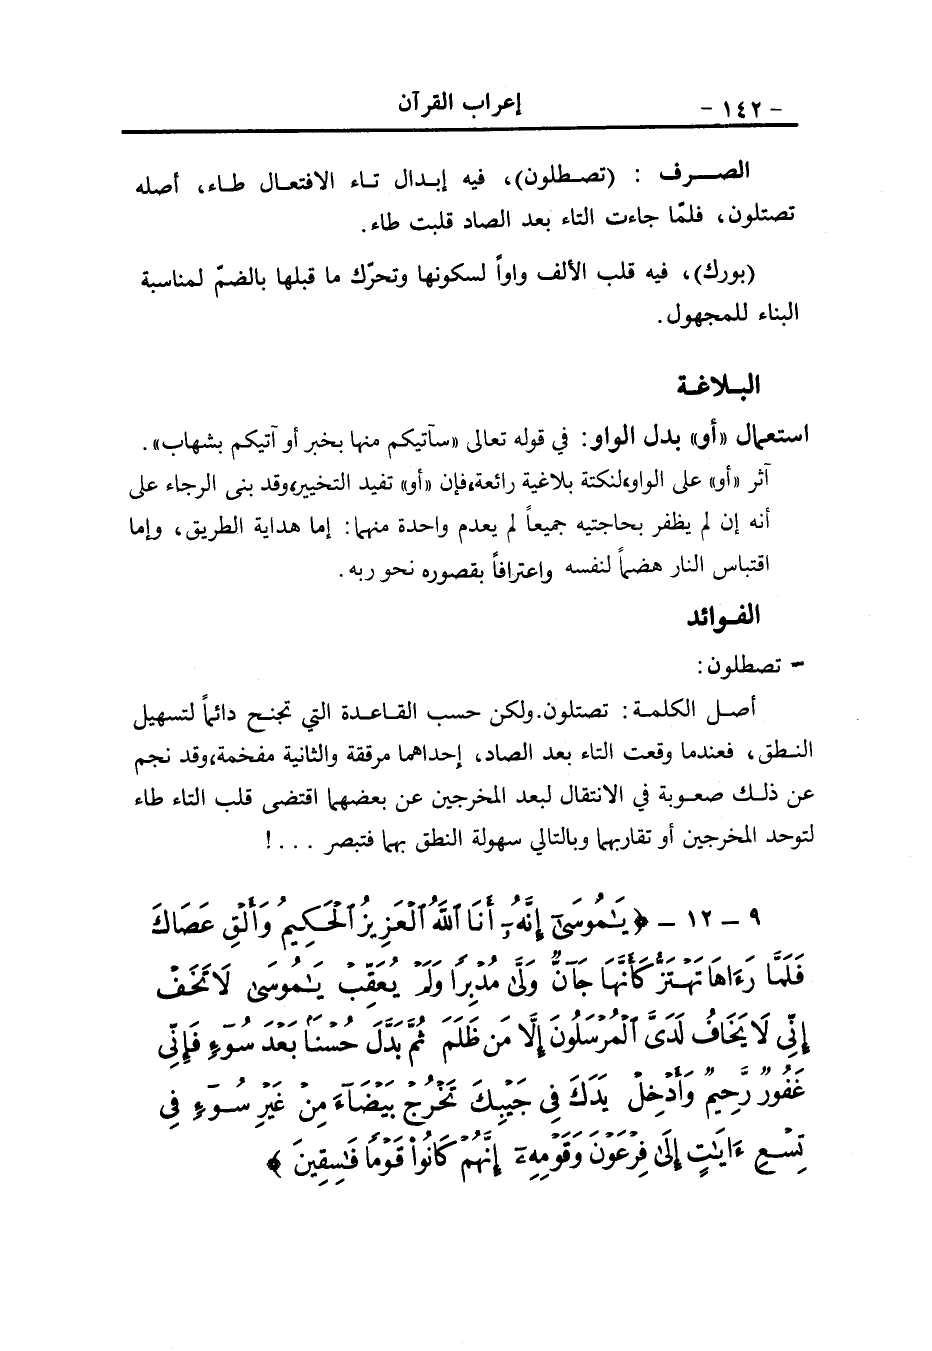 - ١٤٢ - إعراب القرآن
الصـــرف : (تصـطلون)، فيه إبـدال تـاء الافتعـال طـاء، أصله
تصتلون، فلمّا جاءت التاء بعد الصاد قلبت طاء.
(بورك)، فيه قلب الألف واواً لسكونها وتحرّك ما قبلها بالضمّ لمناسبة
البناء للمجهول.
البـلاغـة
استعمال «أو» بدل الواو: في قوله تعالى «سآتيكم منها بخبر أو آتيكم بشهاب».
آثر «أو» على الواو، لنكتة بلاغية رائعة، فإن «أو» تفيد التخيير، وقد بنى الرجاء على
أنه إن لم يظفر بحاجتيه جميعاً لم يعدم واحدة منهما: إما هداية الطريق، وإما
اقتباس النار هضماً لنفسه واعترافاً بقصوره نحو ربه.
الفـوائد
- تصطلون:
أصـل الكلمـة: تصتلون. ولكن حسب القـاعـدة التي تجنـح دائماً لتسهيل
النـطق، فعندما وقعت التاء بعد الصاد، إحداهما مرققة والثانية مفخمة، وقد نجم
عن ذلـك صعـوبة في الانتقال لبعد المخرجين عن بعضهما اقتضى قلب التاء طاء
لتوحد المخرجين أو تقاربهما وبالتالي سهولة النطق بهما فتبصر . . . !
٩ - ١٢ - ﴿ يَـٰمُوسَىٰٓ إِنَّهُۥٓ أَنَا ٱللَّهُ ٱلْعَزِيزُ ٱلْحَكِيمُ وَأَلْقِ عَصَاكَ
فَلَمَّا رَءَاهَا تَهْتَزُّ كَأَنَّهَا جَآنٌّ وَلَّىٰ مُدْبِرًا وَلَمْ يُعَقِّبْ يَـٰمُوسَىٰ لَا تَخَفْ
إِنِّى لَا يَخَافُ لَدَىَّ ٱلْمُرْسَلُونَ إِلَّا مَن ظَلَمَ ثُمَّ بَدَّلَ حُسْنًۢا بَعْدَ سُوٓءٍ فَإِنِّى
غَفُورٌ رَّحِيمٌ وَأَدْخِلْ يَدَكَ فِى جَيْبِكَ تَخْرُجْ بَيْضَآءَ مِنْ غَيْرِ سُوٓءٍ فِى
تِسْعِ ءَايَـٰتٍ إِلَىٰ فِرْعَوْنَ وَقَوْمِهِۦٓ إِنَّهُمْ كَانُوا۟ قَوْمًا فَـٰسِقِينَ ﴾